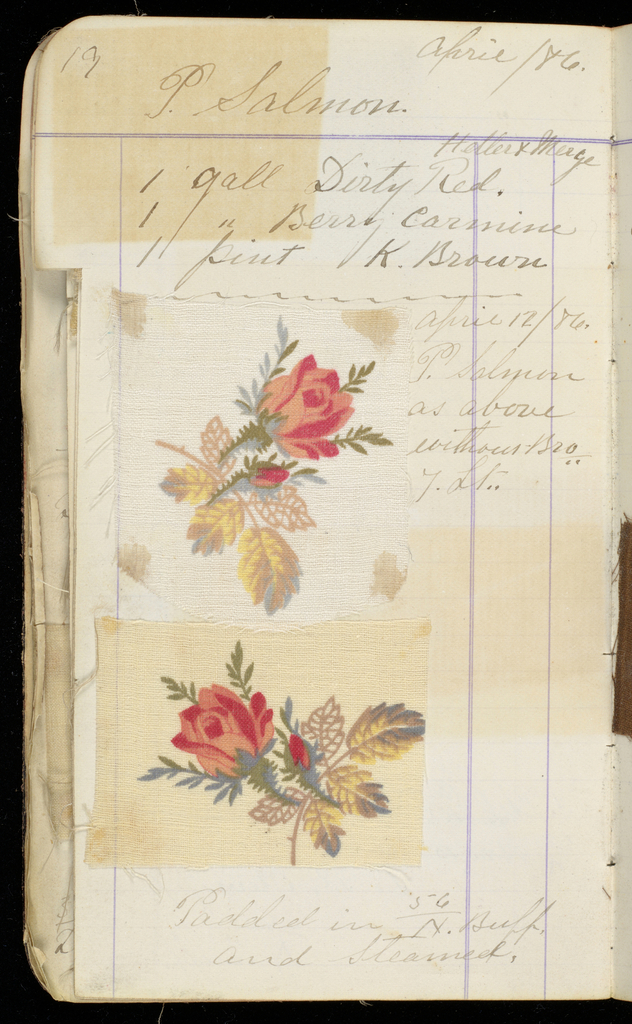 19 April /86.
P. Salmon.
Heller & Merz
1 gall Dirty Red.
1 " Berry Carmine
1 pint K. Brown
April 12/86.
P. Salmon
as above
without Bro
7. Lt.
Padded in 56/N. Buff.
and steamed.